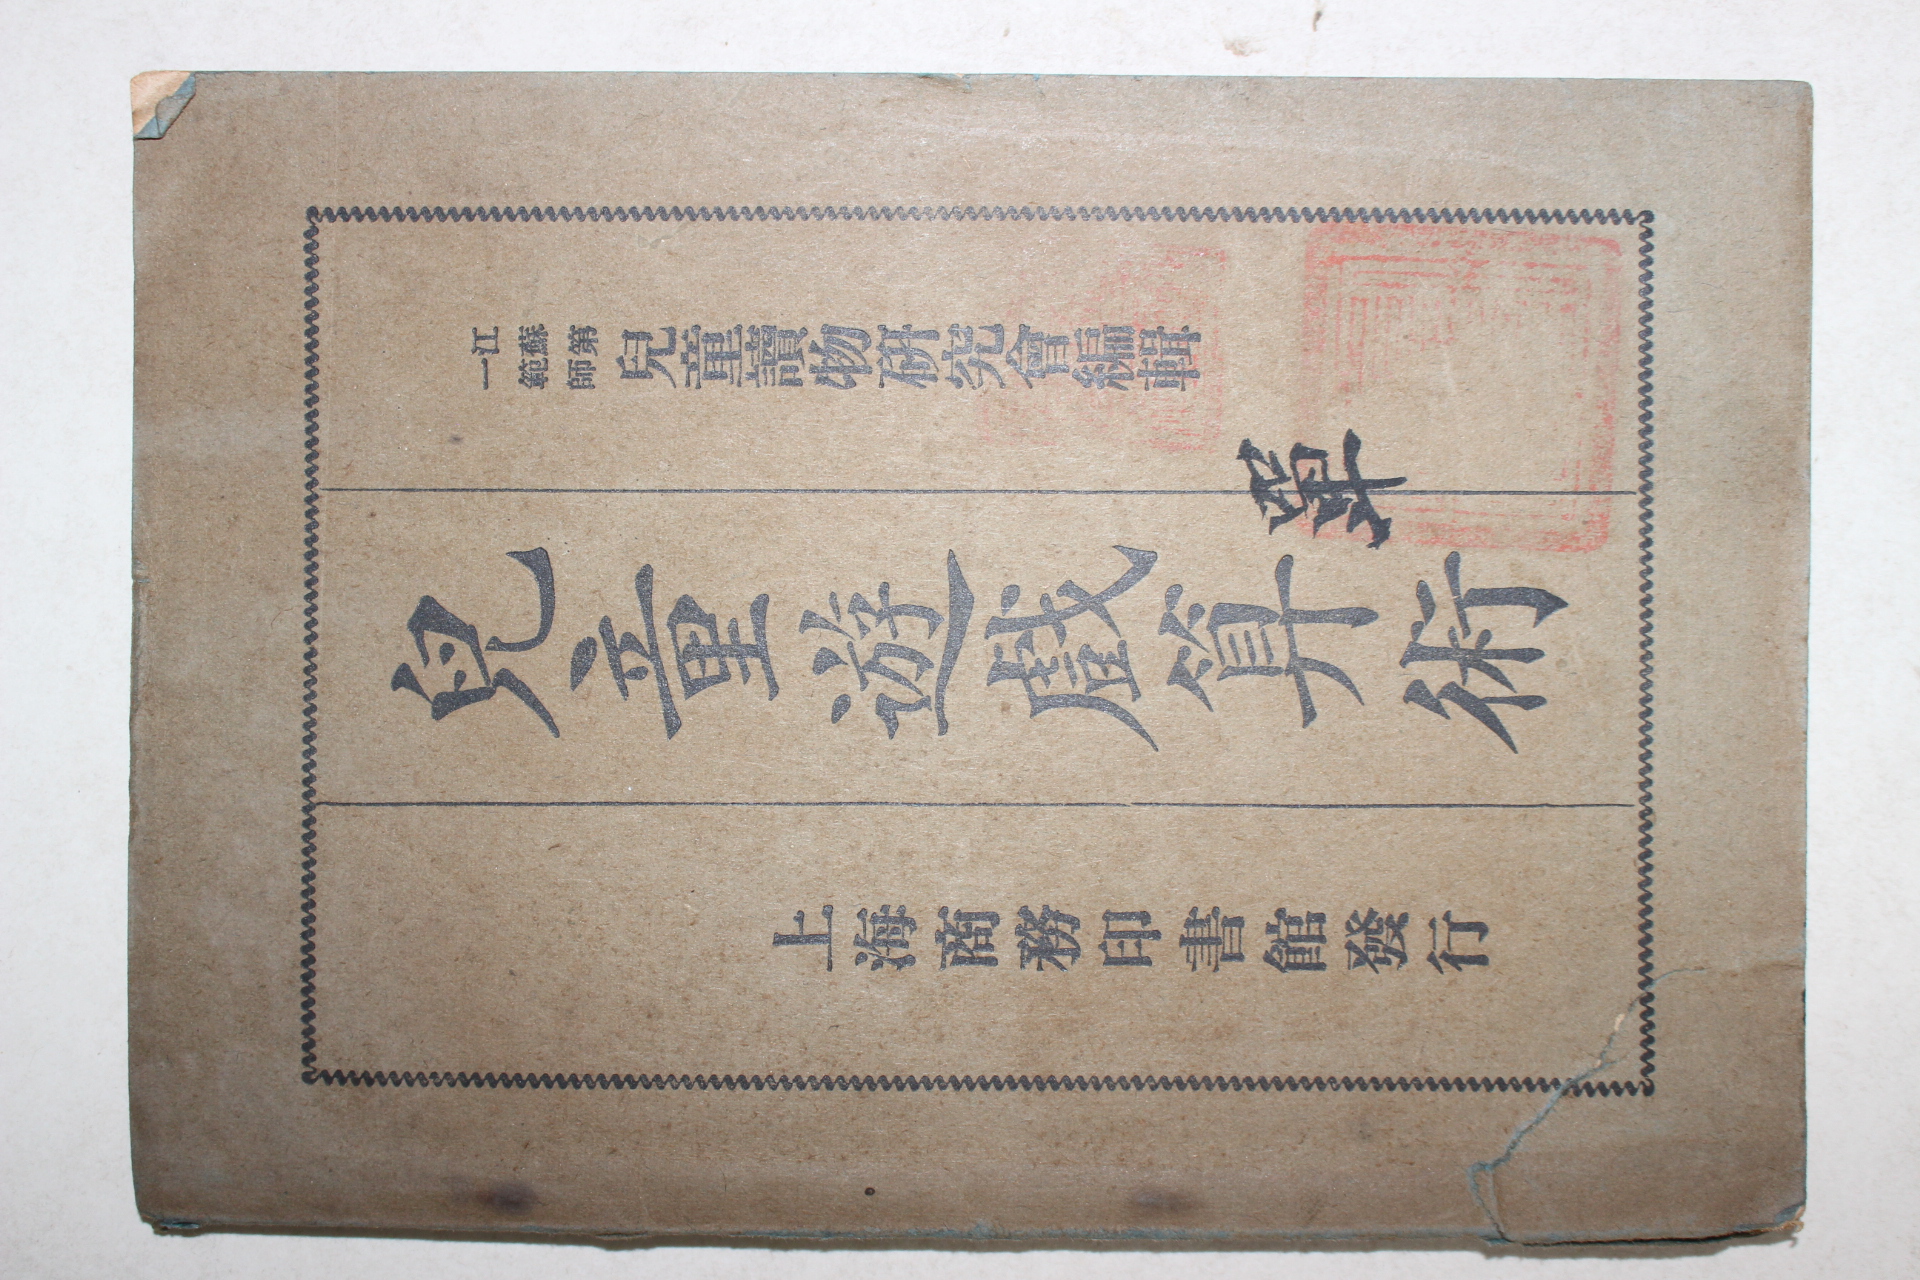 江蘇第
一範師
兒童讀物研究會編輯
兒童遊戲算術
上海商務印書館發行